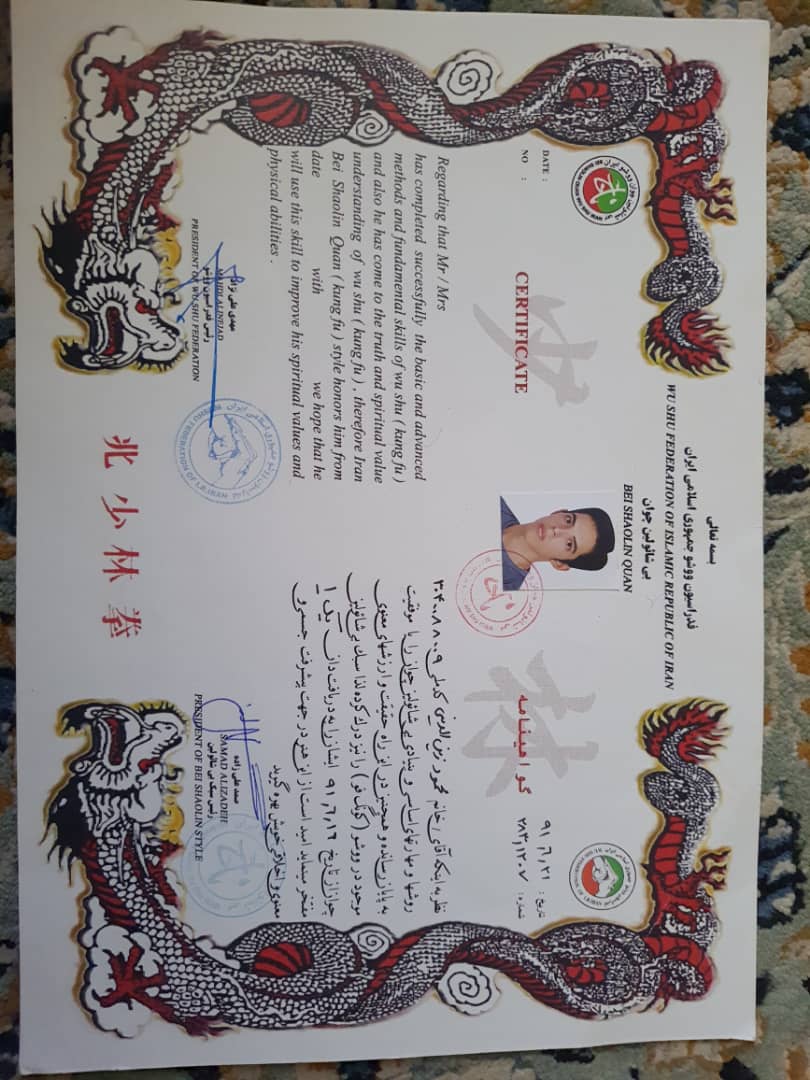 بسمه تعالی
فدراسیون ووشو جمهوری اسلامی ایران
WU SHU FEDERATION OF ISLAMIC REPUBLIC OF IRAN
بی شائولین جوان
BEI SHAOLIN QUAN
DATE :
NO :
تاریخ : ۹۱,۶,۲۱
شماره : ۲۸۳,۱۲۰۷
少 林
CERTIFICATE
گواهینامه
Regarding that Mr / Mrs
has completed successfully the basic and advanced
methods and fundamental skills of wu shu ( kung fu )
and also he has come to the truth and spiritual value
understanding of wu shu ( kung fu ) , therefore Iran
Bei Shaolin Quan ( kung fu ) style honors him from
date with we hope that he
will use this skill to improve his spiritual values and
physical abilities .
نظر به اینکه آقای / خانم محمود زین الدینی
روشها و مهارتهای اساسی و بنیادی بی شائولین جوان را با موفقیت
به پایان رسانده و همچنین در این راه حقیقت و ارزشهای معنوی
موجود در ووشو (کونگ فو) را نیز درک کرده لذا سبک بی شائولین
جوان از تاریخ ۹۱,۶,۱۶ ایشان را به دریافت دان یک ۱
مفتخر مینماید امید است از این هنر در جهت پیشرفت جسمی و
معنوی و اخلاقی خویش بهره گیرند
مهدی علی نژاد
رئیس فدراسیون ووشو
MAHDI ALINEJAD
PRESIDENT OF WU SHU FEDERATION
صمد علی زاده
رئیس سبک بی شائولین
SAMAD ALIZADEH
PRESIDENT OF BEI SHAOLIN STYLE
北 少 林 拳